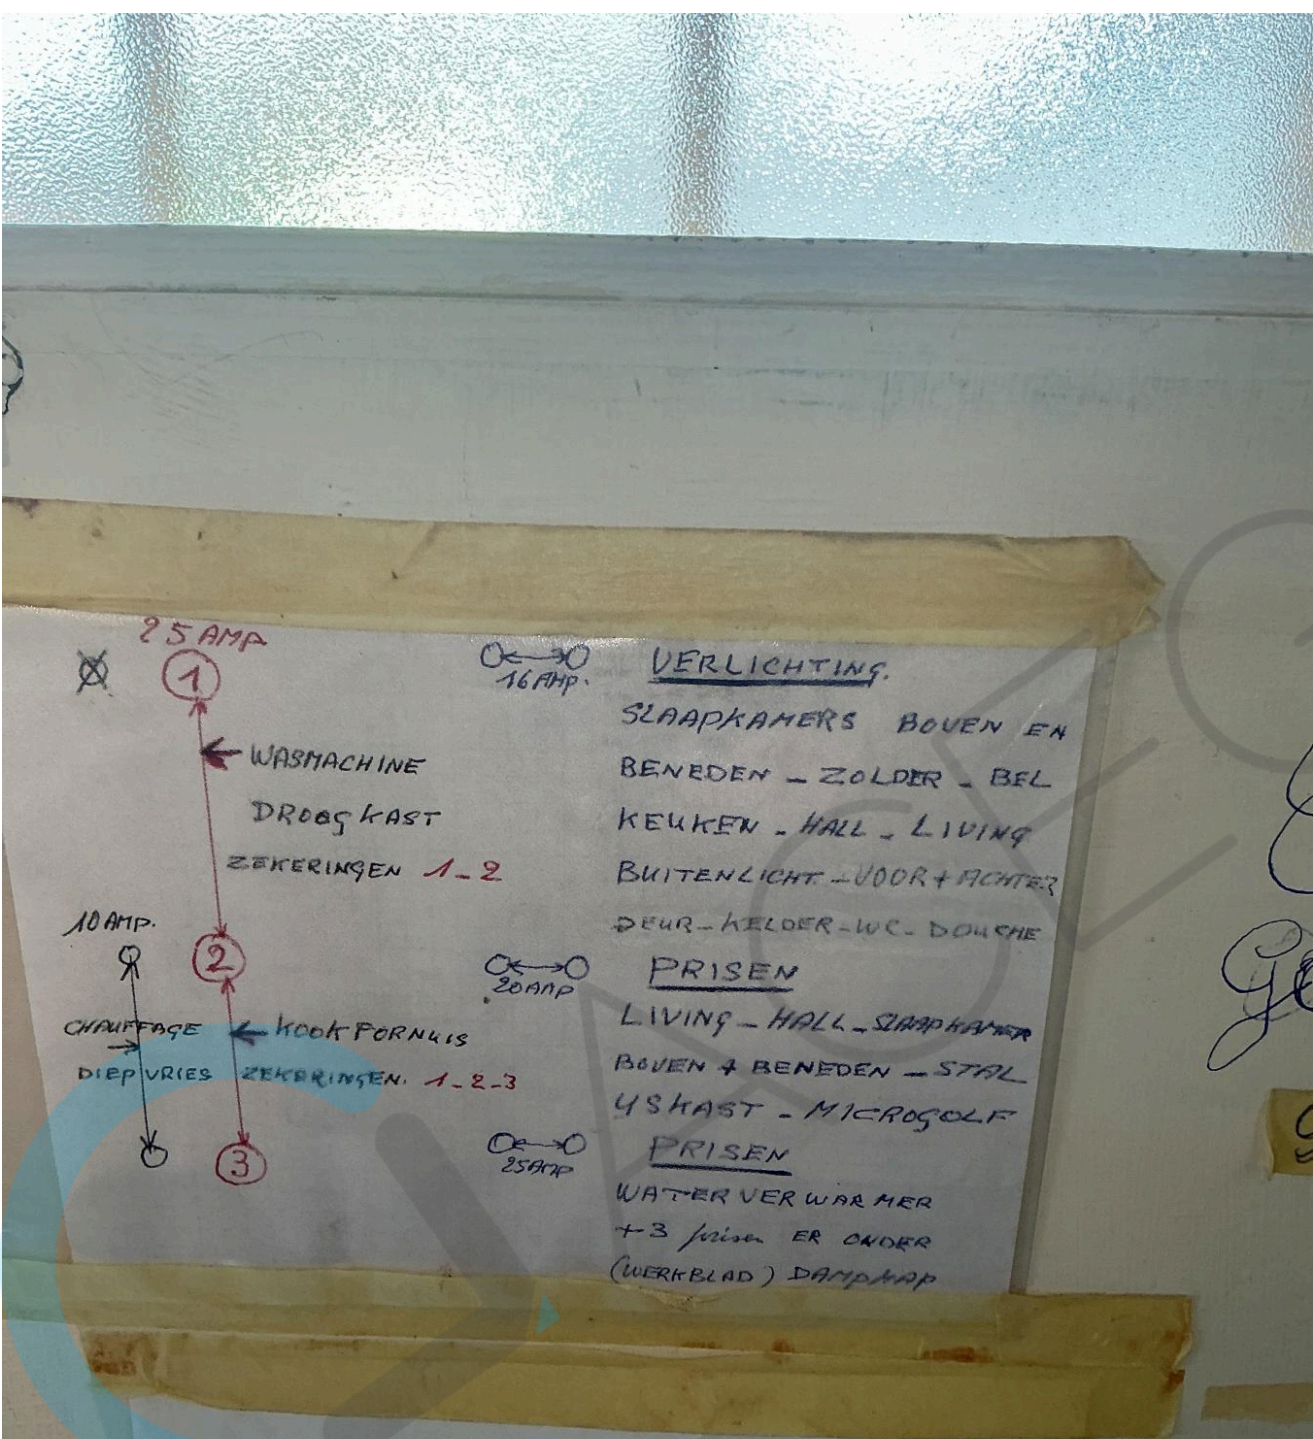 25 AMP
1
WASMACHINE
DROOGKAST
ZEKERINGEN 1-2
10 AMP.
2
CHAUFFAGE
DIEPVRIES
KOOKFORNUIS
ZEKERINGEN. 1-2-3
3
16 AMP.
VERLICHTING.
SLAAPKAMERS BOVEN EN
BENEDEN - ZOLDER - BEL
KEUKEN - HALL - LIVING
BUITENLICHT - VOOR + ACHTER
DEUR - KELDER - WC - DOUCHE
20 AMP
PRISEN
LIVING - HALL - SLAAPKAMER
BOVEN + BENEDEN - STAL
YSKAST - MICROGOLF
25 AMP
PRISEN
WATERVERWARMER
+3 prisen ER ONDER
(WERKBLAD) DAMPKAP